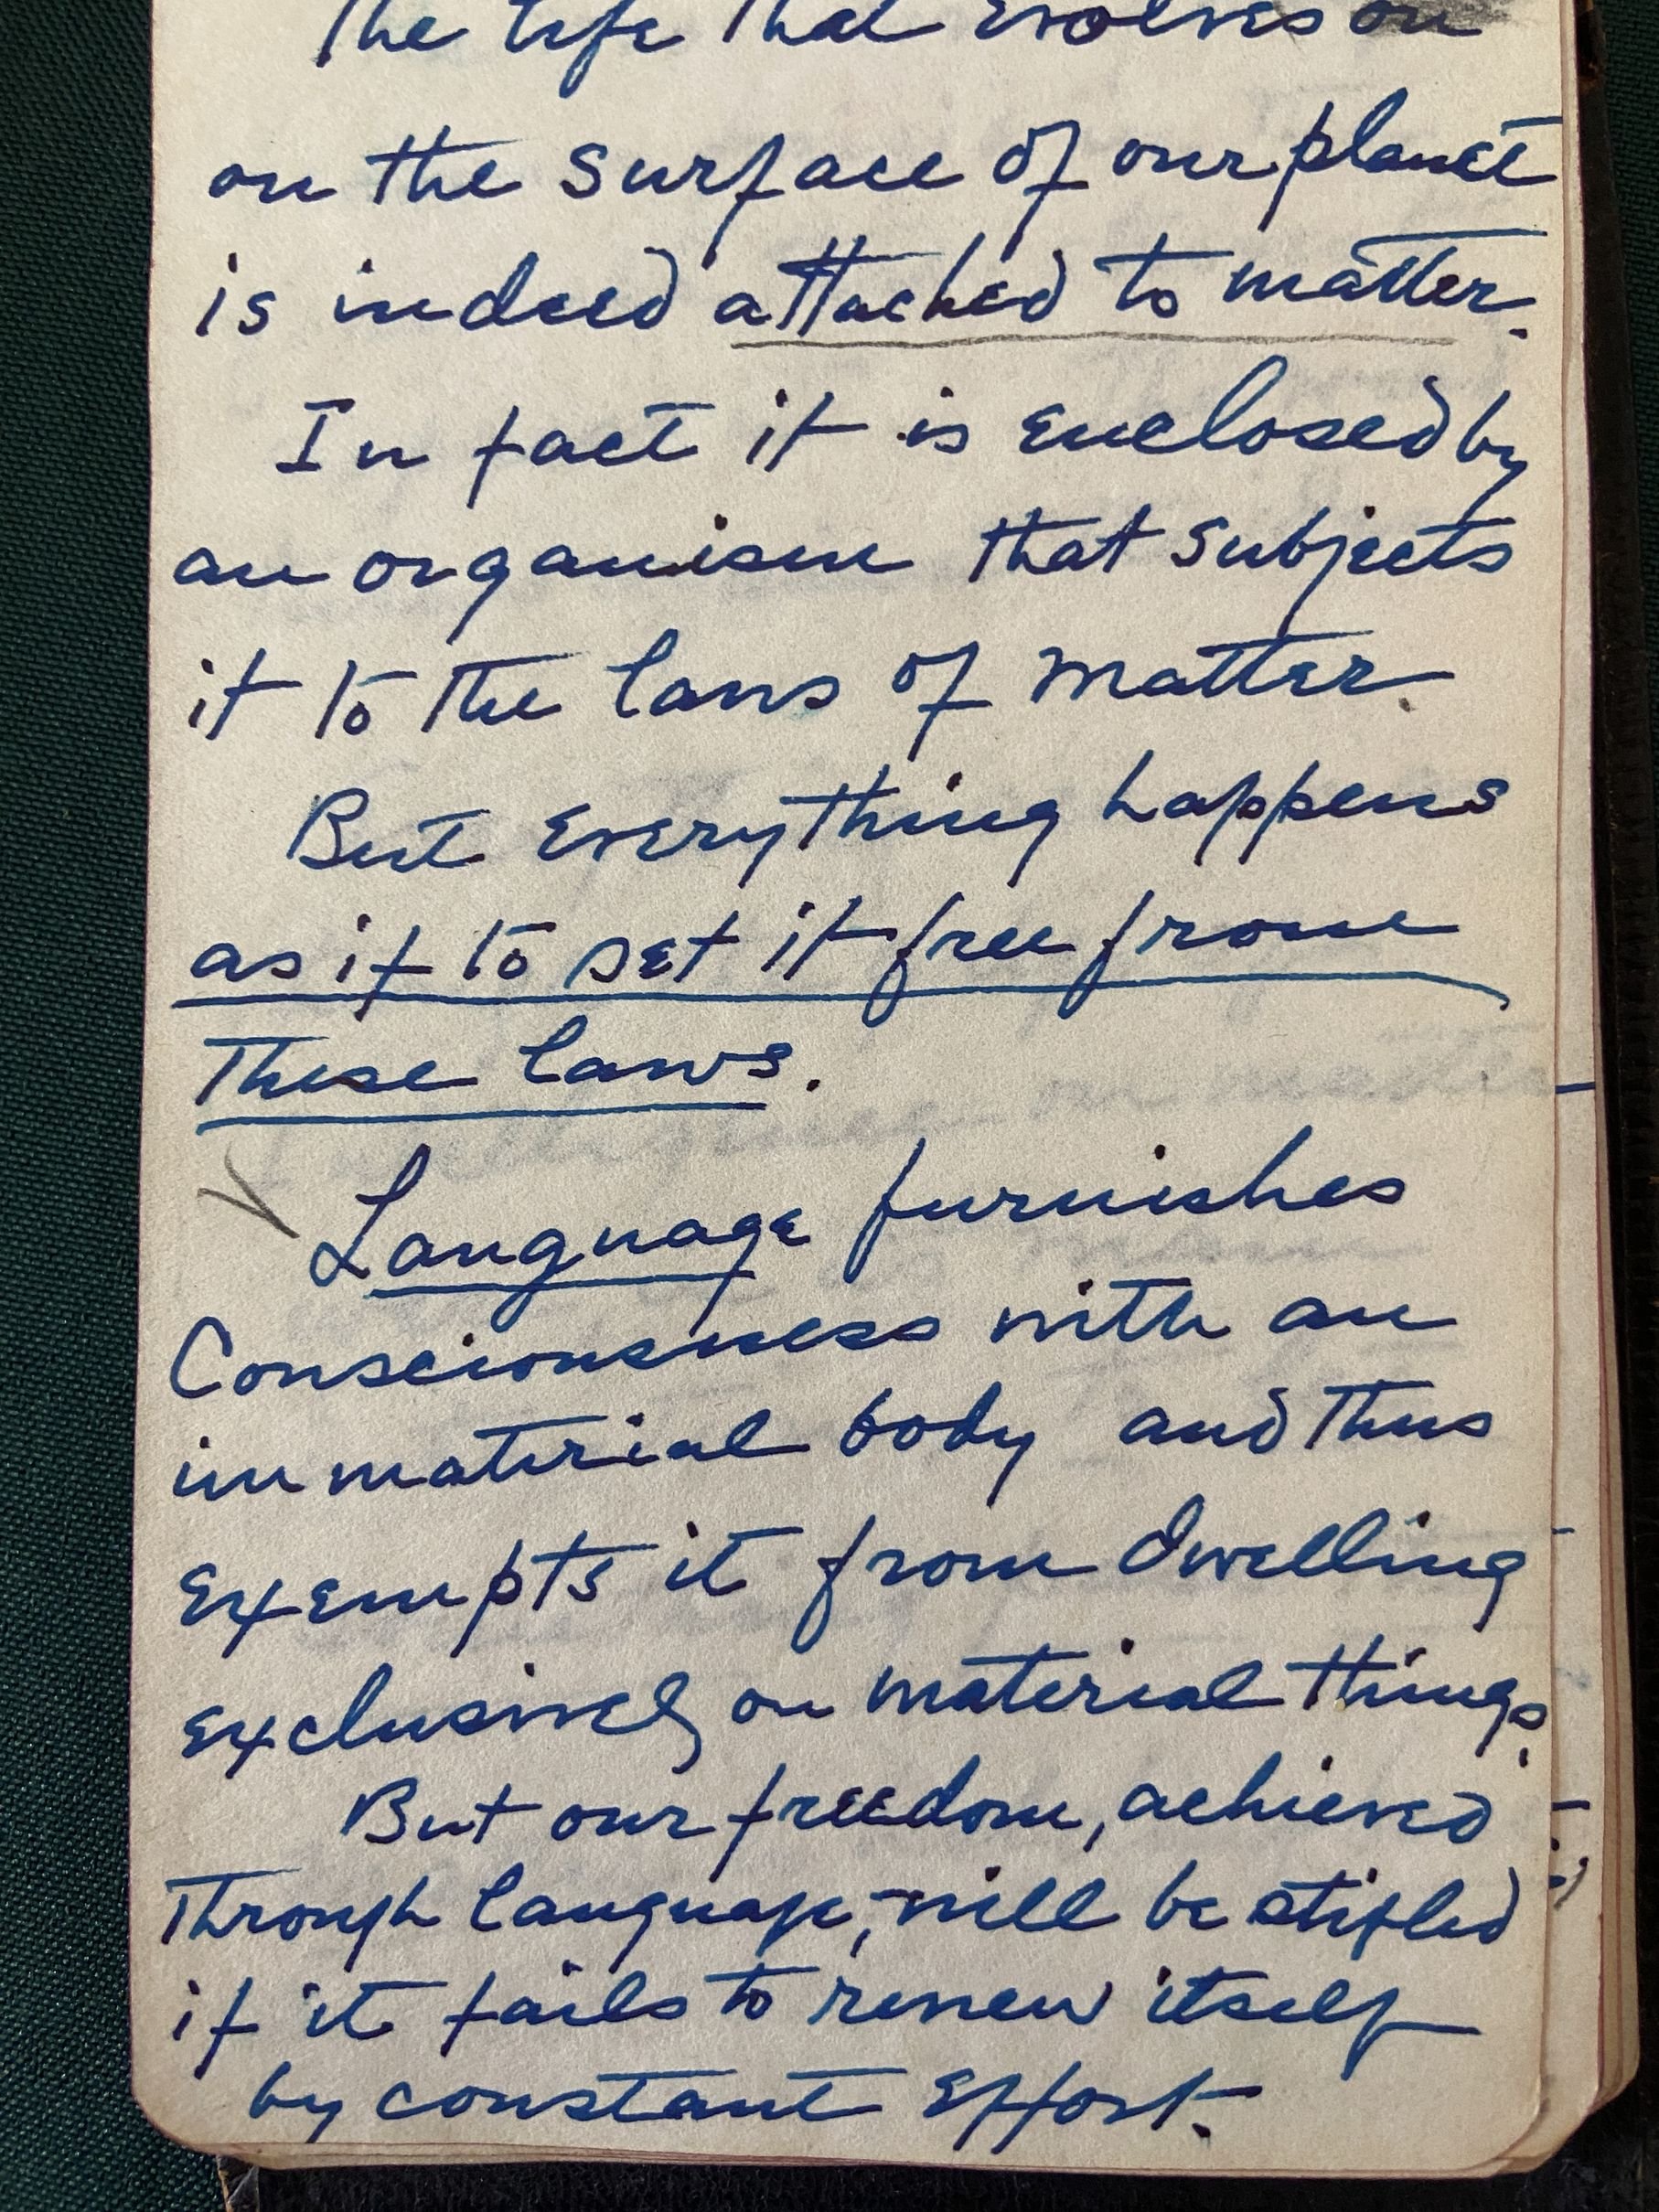 The life that evolves on
on the surface of our planet
is indeed attached to matter.
In fact it is enclosed by
an organism that subjects
it to the laws of matter.
But everything happens
as if to set it free from
these laws.
Language furnishes
Consciousness with an
immaterial body and thus
exempts it from dwelling
exclusively on material things.
But our freedom, achieved
through language, will be stifled
if it fails to renew itself
by constant effort.